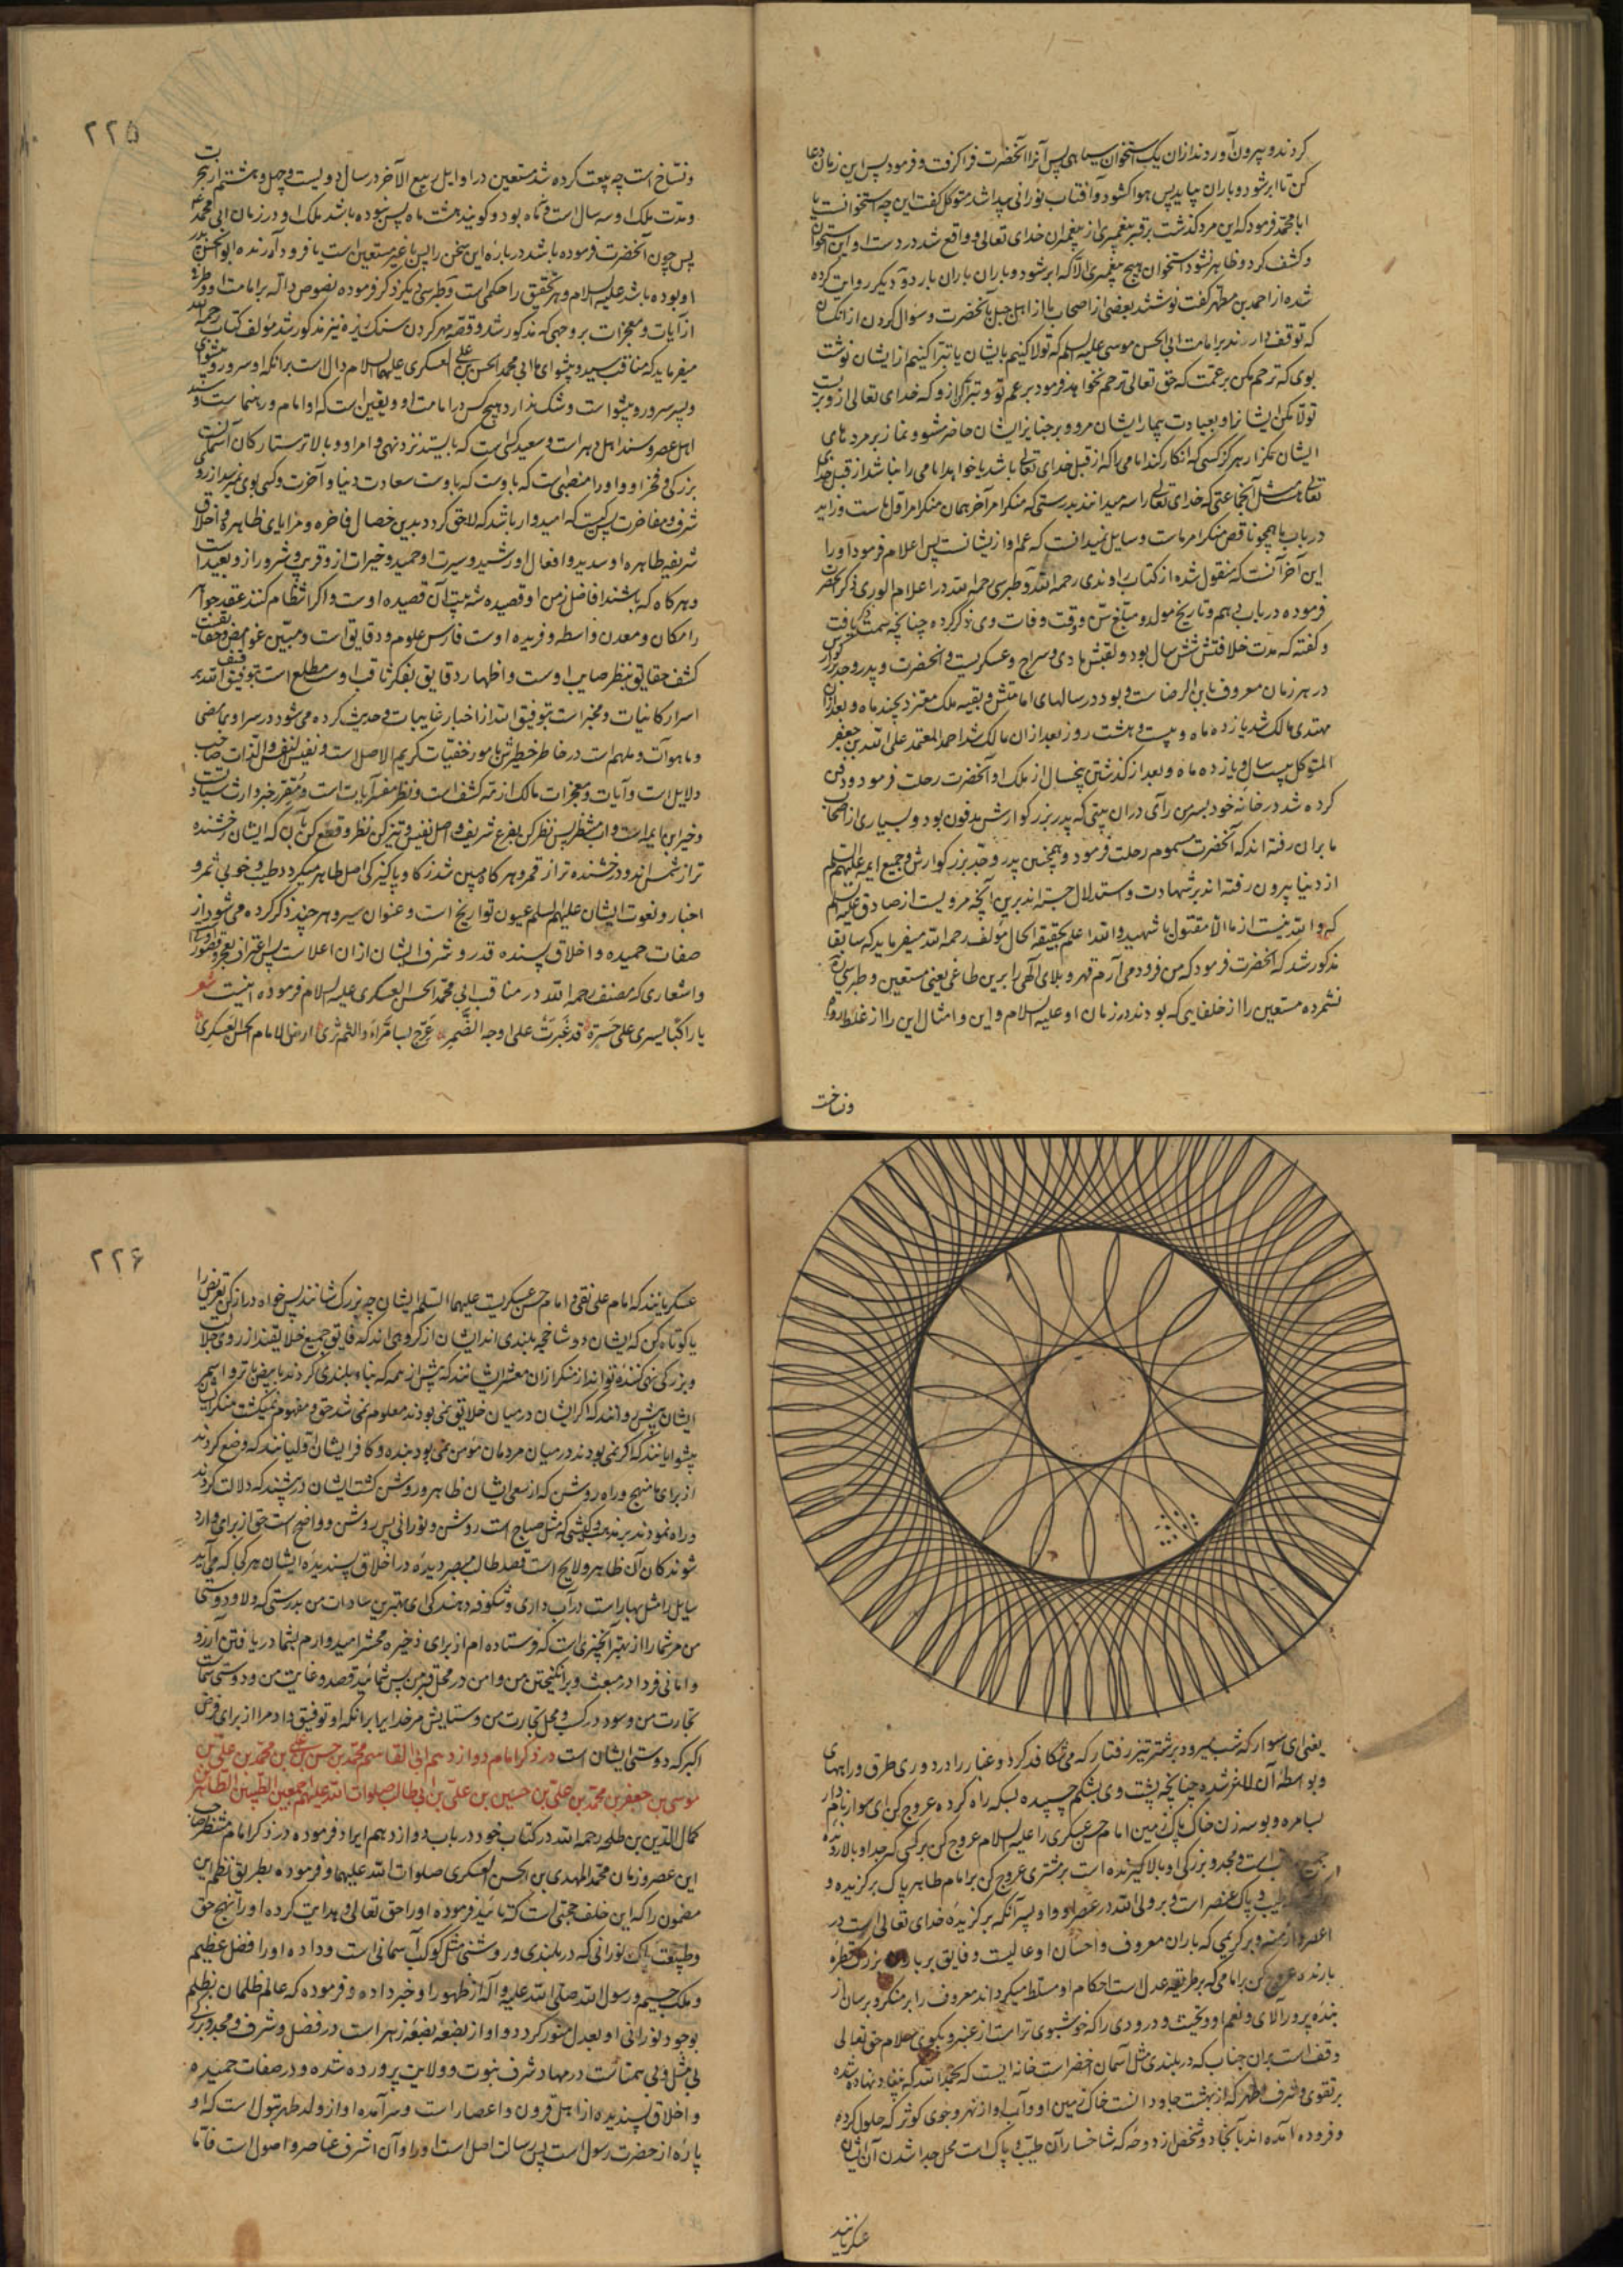 کردند و بیرون آوردند از ان یک استخوان سیاهی پس آنرا آنحضرت فراکرفت و فرمود پس این زمان دعا
کن تا ابر شود و باران بیاید پس هوا کشود و آفتاب نورانی پیدا شد متوکل کفت این چه استخوانست یا
ابا محمد فرمود که این مرد کذشت بر قبر پیغمبری از پیغمبران خدای تعالی و واقع شد در دست او این استخوان
و کشف کرد و ظاهر نشود استخوان هیچ پیغمبری الا که ابر شود و باران باران بارد و آ دیکر روایت کرده
شده از احمد بن مطهر کفت نوشتند بعضی از اصحاب ما از اهل جبل بآنحضرت و سؤال کردن از انکسان
که توقف دارند بر امامت ابی الحسن موسی علیه السلم که تولا کنیم بایشان یا تبرا کنیم از ایشان نوشت
بوی که ترحم مکن بر عمت که حق تعالی ترحم نخواهد فرمود بر عم تو و تبرا کن ازو که خدای تعالی ازو بریست
تولا مکن ایشانرا و بعیادت بیمار ایشان مرو و بر جنایز ایشان حاضر مشو و نماز بر مردهای
ایشان مکزار هرکز کسی که انکار کند امامی را که از قبل خدای تعالی باشد یا خواهد امامی را نباشد از قبل خدای
تعالی مثل آنجماعتی که خدای تعالی را سه میدانند بدرستی که منکر امر آخر همان منکر امر اول است و زاید
در باب ما همچو ناقص منکر امر ماست و سایل نمیدانست که عم او از یشانست پس اعلام فرمود او را
این آخر آنست که منقول شده از کتاب راوندی رحمه الله و طبرسی رحمه الله در اعلام الوری ذکر آنحضرت
فرموده در باب دهم و تاریخ مولد و مبلغ سن و وقت وفات وی ذکر کرده چنانچه سمت ذکر یافت
و کفته که مدت خلافتش شش سال بود و لقبش هادی و سراج و عسکریست و آنحضرت و پدر و جد بزرکوارش
در هر زمان معروف بابن الرضاست و بود در سالهای امامتش بقیه ملک معتز د چند ماه و بعد از ان
مهتدی مالک شد یازده ماه و بیست و هشت روز بعد از ان مالک شد احمد المعتمد علی الله بن جعفر
المتوکل بیست سال و یازده ماه و بعد از کذشتن پنجسال از ملک او آنحضرت رحلت فرمود و دفن
کرده شد در خانه خود بسر من رآی در ان بیتی که پدر بزرکوارش مدفون بود و بسیاری از اصحاب
ما بر ان رفته اند که آنحضرت مسموم رحلت فرمود و همچنین پدر و جد بزرکوارش و جمیع ایمه علیهم السلم
از دنیا بیرون رفته اند بر شهادت و استدلال جسته اند برین بآنچه مرویست از صادق علیه السلم
که و الله نیست از ما الا مقتول یا شهید و الله اعلم بحقیقه الحال مؤلف رحمه الله میفرماید که سابقا
مذکور شد که آنحضرت فرمود که من فرود می آرم قهر و بلای آلهی را برین طاغی یعنی مستعین و طبرسی
نشمرده مستعین را از خلفایی که بودند در زمان او علیه السلام و این و امثال این را از غلط رواة
و نساخت
۲۲۵
و نساخ است چه بیعت کرده شد مستعین در اوایل ربیع الآخر در سال دویست و چهل و هشتم از هجرت
و مدت ملک او سه سال است و نه ماه بود و کویند هشت ماه پس نبوده باشد ملک او در زمان ابی محمد ع
پس چون آنحضرت فرموده باشد در باره این سخن را پس یا غیر مستعین است یا فرود آرنده ابو الحسن پدر
او بوده باشد علیه السلام و هر تحقیق را حکمی است و طبرسی دیکر ذکر فرموده نصوص داله بر امامت او و طرفی
از آیات و معجزات بروجهی که مذکور شد و قصه مهر کردن سنک ریزه نیز مذکور شد مؤلف کتاب رحمه الله
میفرماید که مناقب سید و پیشوای ما ابی محمد الحسن بن علی العسکری علیهما السلام دال است بر آنکه او سرور و پیشوای
و پسر سرور و پیشواست و شک ندارد هیچکس در امامت او و یقین است که او امام و رهنماست و سید
اهل عصر و سند اهل دهر است و سعید کسی است که بایستد نزد نهی و امر او و بالاتر ستارکان آسمانست
شرف و مفاخرت کیست که امیدوار باشد که لاحق کردد بدین خصال فاخره و مزایای ظاهره و اخلاق
شریفه طاهره او سدید و افعال او رشید و سیرت او حمید و خیرات ازو قریب و شرور ازو بعید است
و هرکاه که باشند افاضل زمن او قصیده شه بیت آن قصیده اوست و اکر انتظام کنند عقد جواهر
را مکان و معدن واسطه و فریده اوست فارس علوم و دقایق است و مبین غوامض و حقایق
کشف حقایق بنظر صایب اوست و اظهار دقایق بفکر ثاقب اوست مطلع است بتوفیق الله بر
اسرار کاینات و مخبر است بتوفیق الله از اخبار غایبات و حدیث کرده می شود در سر او بماضی
و ما هو آت و ملهم است در خاطر خطیرش بامور خفیات کریم الاصل است و نفیس النفس و الذات صاحب
اخبار و نعوت ایشان علیهم السلم عیون تواریخ است و عنوان سیر و هر چند ذکر کرده می شود از
صفات حمیده و اخلاق پسندیده قدر و شرف ایشان از ان اعلاست پس اعتراف بعجز و قصور اولاست
و اشعاری که مصنف رحمه الله در مناقب ابی محمد الحسن العسکری علیه السلام فرموده اینست شعر
یا راکبا یسری علی جسرة قد غبرت علی اوجه الضمر عرج بسامراء و الثم ثری ارض الامام الحسن العسکری
یعنی ای سوار که شب میرود بر شتر تیز رفتار که می شکافد کرد و غبار را در دوری طرق و راههای
و بواسطه آن لاغر شده چنانچه پشت وی بشکم چسپیده بسکه راه کرده عروج کن ای سوار نامدار
بسامره و بوسه زن خاک پاک زمین امام حسن عسکری را علیه السلام عروج کن بر کسی که جد او بالا رونده
است و مجد و بزرکی او بالا کیرنده است بر مشتری عروج کن بر امام طاهر پاک برکزیده و
طیب و پاک عنصر است و بر ولی الله در عصر او و او پسر آنکه برکزیده خدای تعالی است در
اعصر و ازمنه و بر کریمی که باران معروف و احسان او عالیست و فایق بر باران بزرک قطره
بارنده عروج کن بر امامی که بر طریقه عدل است احکام او مسلط میکرداند معروف را بر منکر و برسان از
بنده پرور آلای و نعم او و تحیت و درودی را که خوشبوی تر است از عنبر و بکوی سلام حق تعالی
وقف است بر ان جناب که در بلندی مثل آسمان خضر است خانه ایست که بحمد الله که بنیاد نهاده شده
بر تقوی و شرف اطهر که از بهشت جاودانست خاک زمین او و آب او از نهر و جوی کوثر که حلول کرده
و فرود آمده اند بآنجا دو شخص از دوحه که شاخسار آن طیب و پاک است محل جدا شدن آن ایشان
عسکریانند
۲۲۶
عسکریانند که امام علی نقی و امام حسن عسکریست علیهما السلم ایشان چه بزرک شانند پس خواه دراز کن تعریض را
یا کوتاه کن که ایشان دو شاخچه بلندی اند ایشان از کروهی اند که فایق جمیع خلایقند از روی جلالت
ایشان پیش روانند که اکر ایشان در میان خلایق نمی بودند معلوم نمی شد حق و مفهوم نمیکشت منکر ایشان
پیشوایانند که اکر نمی بودند در میان مردمان مؤمن نمی بود بنده و کافر ایشان اولیانند که وضع کردند
از برای ما منهج و راه روشن که از سعی ایشان ظاهر و روشن کشت ایشان در پیشند که دلالت کردند
و راه نمودند بر مذهب و کیشی که مثل صباح است روشن و نورانی پس روشن و واضح است حق از برای وارد
شوندکان آن ظاهر و لایح است قصد طالب مبصر دیده در اخلاق پسندیده ایشان هرکاه که می آید
سایل را مثل بهار است در آب داری و شکوفه دهندکی ای بهترین سادات من بدرستی که ولا و دوستی
من مر شما را از بهتر آنچیزی است که فرستاده ام از برای ذخیره محشر امیدوارم بشما دریافتن آرزو
و امانی فردا در مبعث و برانکیختن من و امن در محل قبر من پس شمائید قصد و غایت من و دوستی شما
تجارت من و سود در کسب و محل تجارت من و ستایش مر خدایرا برانکه او توفیق داد مرا از برای فرض
اکبر که دوستی ایشان است در ذکر امام دوازدهم ابی القاسم محمد بن حسن بن علی بن محمد بن علی بن
موسی بن جعفر بن محمد بن علی بن حسین بن علی بن ابی طالب صلوات الله علیهم اجمعین الطیبین الطاهرین
کمال الدین بن طلحه رحمه الله در کتاب خود در باب دوازدهم ایراد فرموده در ذکر امام منتظر صاحب
این عصر و زمان محمد المهدی بن الحسن العسکری صلوات الله علیهما و فرموده بطریق نظم این
مضمون را که این خلف حجتی است که تائید فرموده او را حق تعالی و هدایت کرده او را بنهج حق
و ملک جسیم و رسول الله صلی الله علیه و آله از ظهور او خبر داده و فرموده که عالم ظلمان بظلم
بوجود نورانی او بعدل منور کردد و او از بضعه بضعه زهراست در فضل و شرف و مجد و بزرکی
بی مثل و بی همتاست در مهاد شرف نبوت و ولایت پرورده شده و در صفات حمیده
و اخلاق پسندیده از اهل قرون و اعصار است و سرآمده او از ولد طهر بتول است که او
پاره از حضرت رسول است پس رسالت اصل است او را و آن اشرف عناصر و اصول است فاما